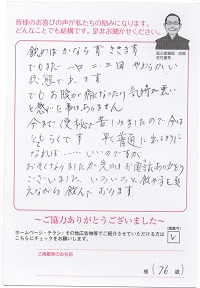 皆様のお喜びの声が私たちの励みになります。
どんなことでも結構です。是非お聞かせください。
飲めばかならず ききます
でもまだ 一日 二、三回 やわらかい
状態です。ます
でもお腹が痛くなったり 気持が悪い
と感じた事はありません
今まで便秘で苦しみましたので 今は
らくです 早く普通に出るように
なればいいなと思います
おそくなりましたが 先日は お電話ありがとう
ございました いろいろと飲み方も考
えながら飲んでおります
～ご協力ありがとうございました～
ホームページ・チラシ・その他広告物等でご紹介させていただける方は
こちらにチェックをお願いします。
ご掲載時のお名前
様(76歳)